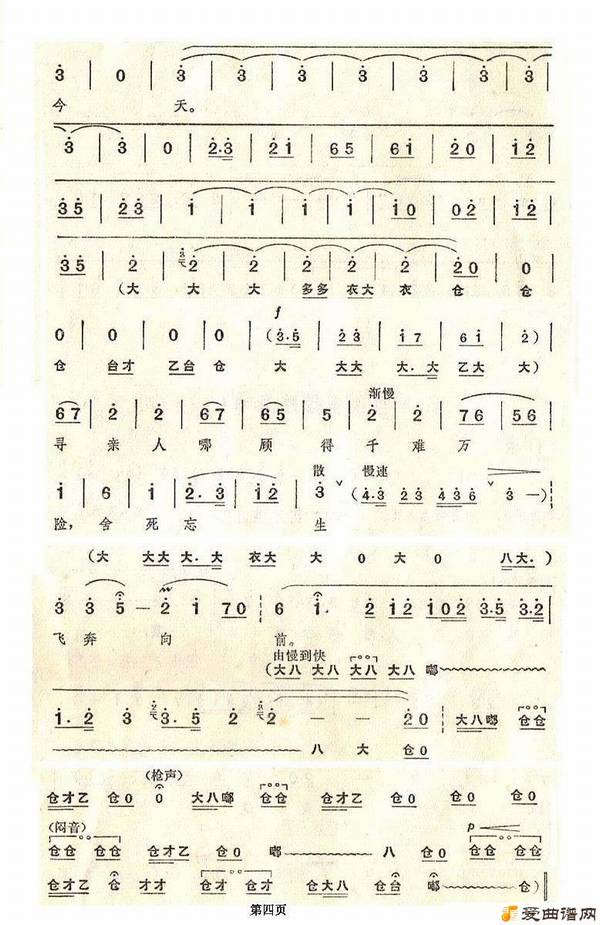 3 | 0 | 3 | 3 | 3 | 3 | 3 | 3 | 3 | 3 |
今 天。
3 | 3 | 0 | 2·3 | 2 1 | 6 5 | 6 1 | 2 0 | 1 2 |
3 5 | 2 3 | 1 | 1 | 1 | 1 | 1 0 | 0 2 | 1 2 |
3 5 | 2 | 2 | 2 | 2 | 2 | 2 0 | 0 |
(大 大 大 多多 衣大 衣 仓 仓
f
0 | 0 | 0 | 0 | (3·5 | 2 3 | 1 7 | 6 1 | 2) |
仓 台才 乙台 仓 大 大大 大·大 乙大 大)
渐慢
6 7 | 2 | 2 | 6 7 | 6 5 | 2 | 2 | 7 6 | 5 6 |
寻 亲 人 哪 顾 得 千 难 万
散 慢速
1 | 6 | 1 | 2·3 | 1 2 | 3 (4·3 2 3 4 3 6 3 —)
险, 舍 死 忘 生
(大 大大 大·大 衣大 大 0 大 0 八大·)
3 3 5 — 2 1 7 0 6 1· 2 1 2 1 0 2 3·5 3·2
飞 奔 向 前。
由慢到快
(大八 大八 大八 大八 嘟
1·2 3 3·5 2 2 — — 2 0 大八嘟 仓仓
八 大 仓0
(枪声)
仓才乙 仓0 0 大八嘟 仓仓 仓才乙 仓0 仓才乙 仓0
(闷音) p
仓仓 仓仓 仓才乙 仓0 嘟 八 仓0 仓仓 仓仓
仓才乙 仓 才才 仓才 仓 仓大八 仓台 嘟 仓)
第四页
爱曲谱网